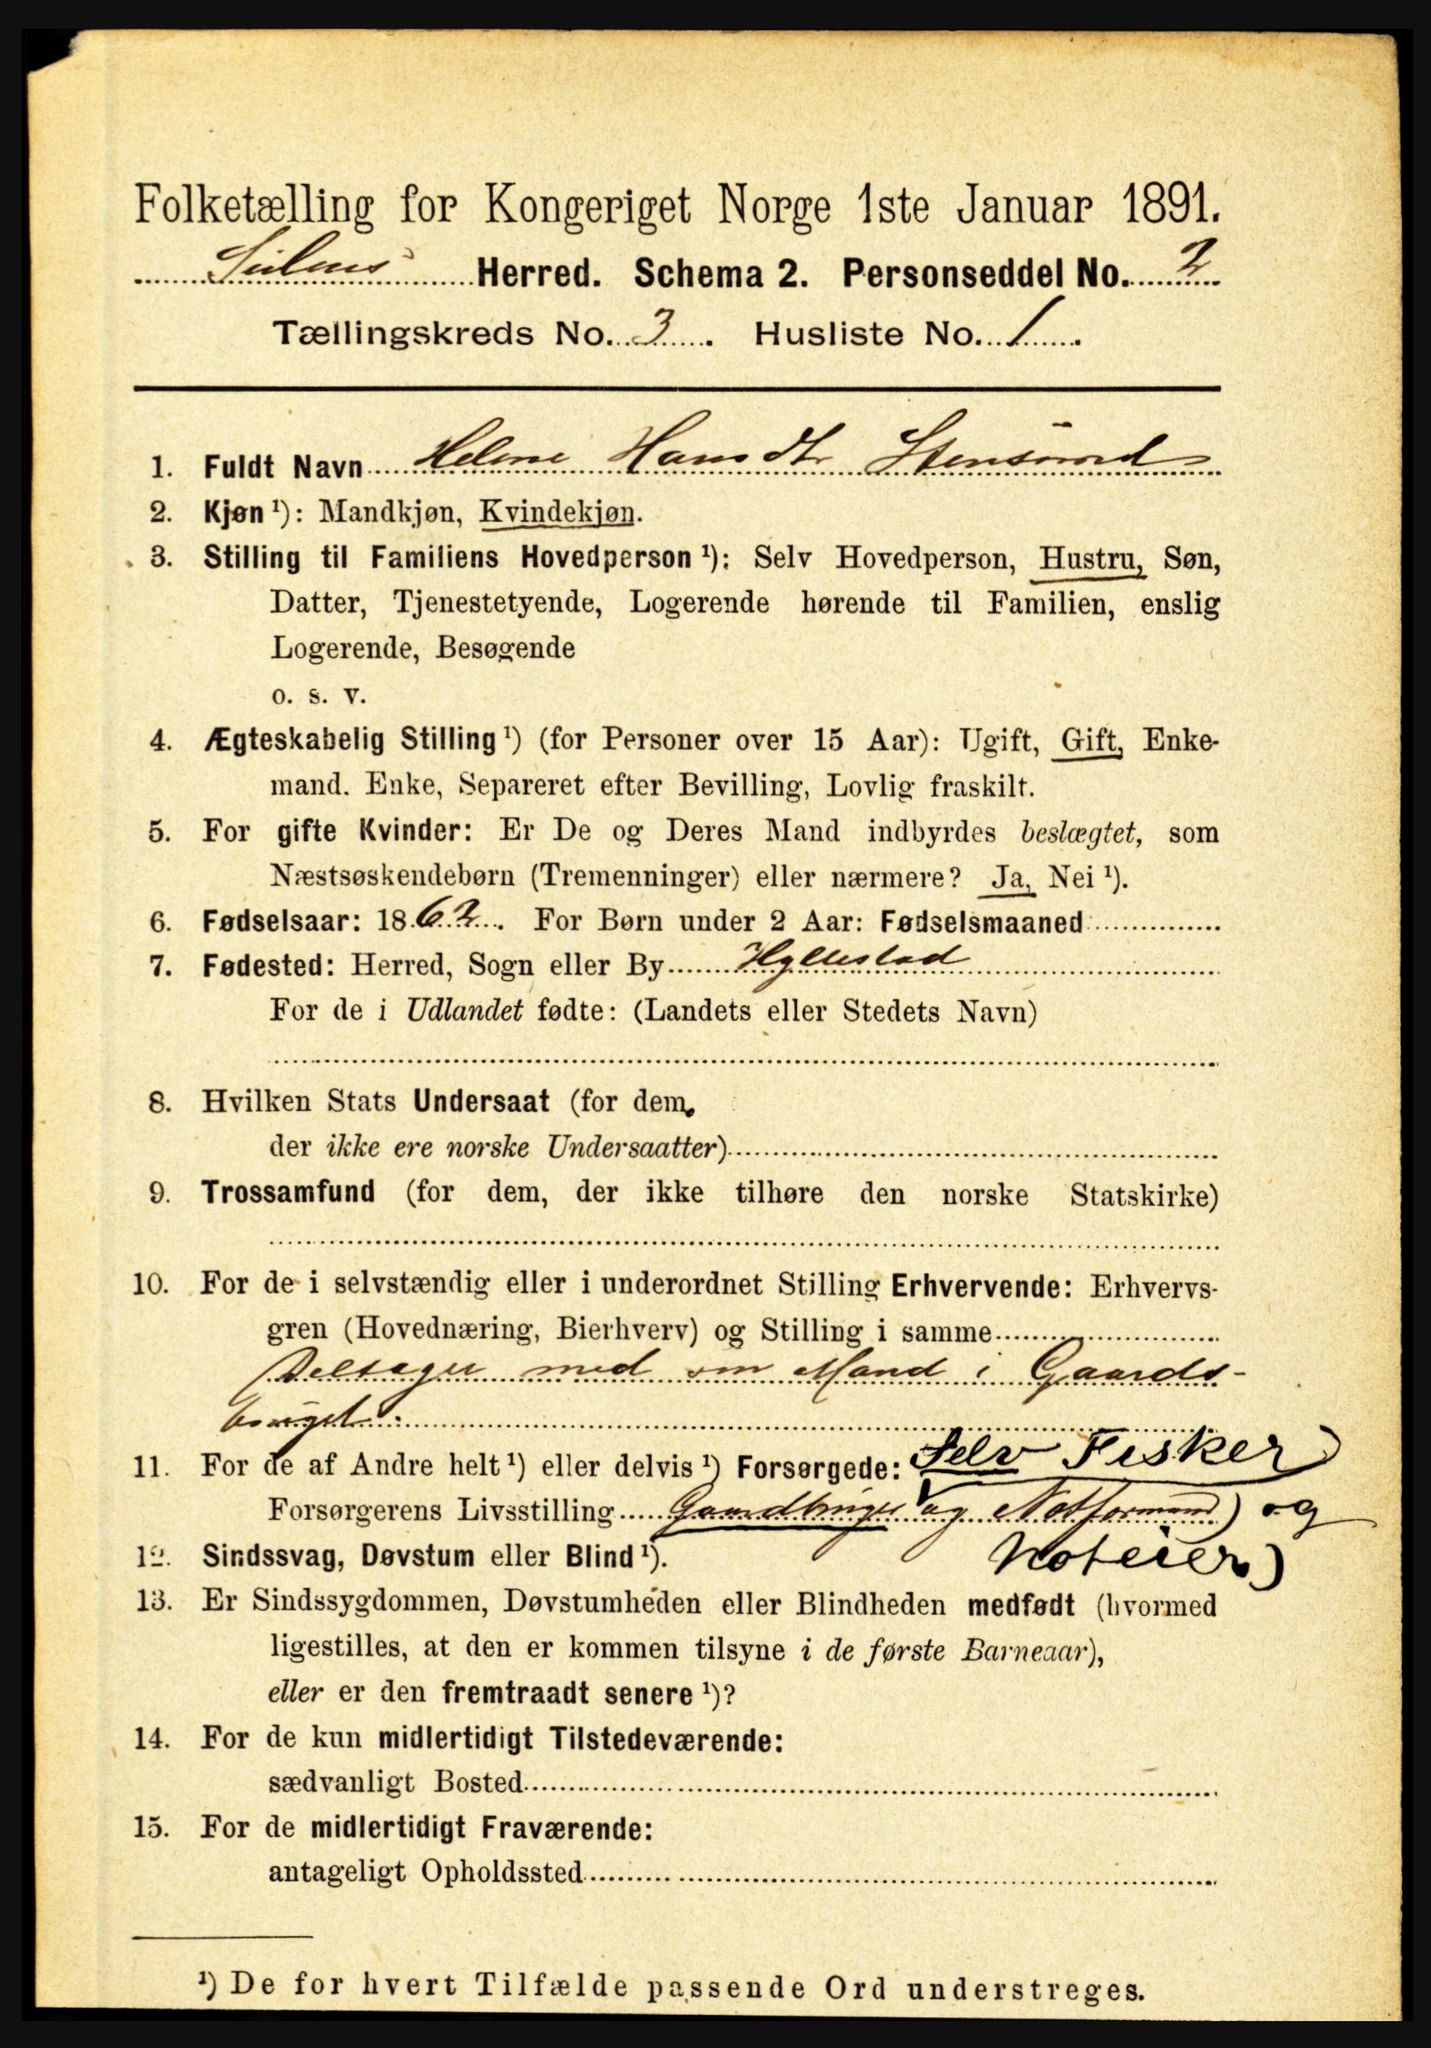 Folketælling for Kongeriget Norge 1ste Januar 1891.
Herred. Schema 2. Personseddel No. 2
Tællingskreds No. 3. Husliste No. 1.
1. Fuldt Navn Helene Hansdtr
2. Kjøn ¹): Mandkjøn, Kvindekjøn.
3. Stilling til Familiens Hovedperson ¹): Selv Hovedperson, Hustru, Søn,
Datter, Tjenestetyende, Logerende hørende til Familien, enslig
Logerende, Besøgende
o. s. v.
4. Ægteskabelig Stilling ¹) (for Personer over 15 Aar): Ugift, Gift, Enke-
mand. Enke, Separeret efter Bevilling, Lovlig fraskilt.
5. For gifte Kvinder: Er De og Deres Mand indbyrdes beslægtet, som
Næstsøskendebørn (Tremenninger) eller nærmere? Ja, Nei ¹).
6. Fødselsaar: 1862. For Børn under 2 Aar: Fødselsmaaned
7. Fødested: Herred, Sogn eller By Hyllestad
For de i Udlandet fødte: (Landets eller Stedets Navn)
8. Hvilken Stats Undersaat (for dem,
der ikke ere norske Undersaatter)
9. Trossamfund (for dem, der ikke tilhøre den norske Statskirke)
10. For de i selvstændig eller i underordnet Stilling Erhvervende: Erhvervs-
gren (Hovednæring, Bierhverv) og Stilling i samme
Deltager med sin Mand i Gaards-
bruget.
11. For de af Andre helt ¹) eller delvis ¹) Forsørgede: Selv Fisker
Forsørgerens Livsstilling Gaardbruger og Notformand) og
Noteier)
12. Sindssvag, Døvstum eller Blind ¹).
13. Er Sindssygdommen, Døvstumheden eller Blindheden medfødt (hvormed
ligestilles, at den er kommen tilsyne i de første Barneaar),
eller er den fremtraadt senere ¹)?
14. For de kun midlertidigt Tilstedeværende:
sædvanligt Bosted
15. For de midlertidigt Fraværende:
antageligt Opholdssted
¹) De for hvert Tilfælde passende Ord understreges.